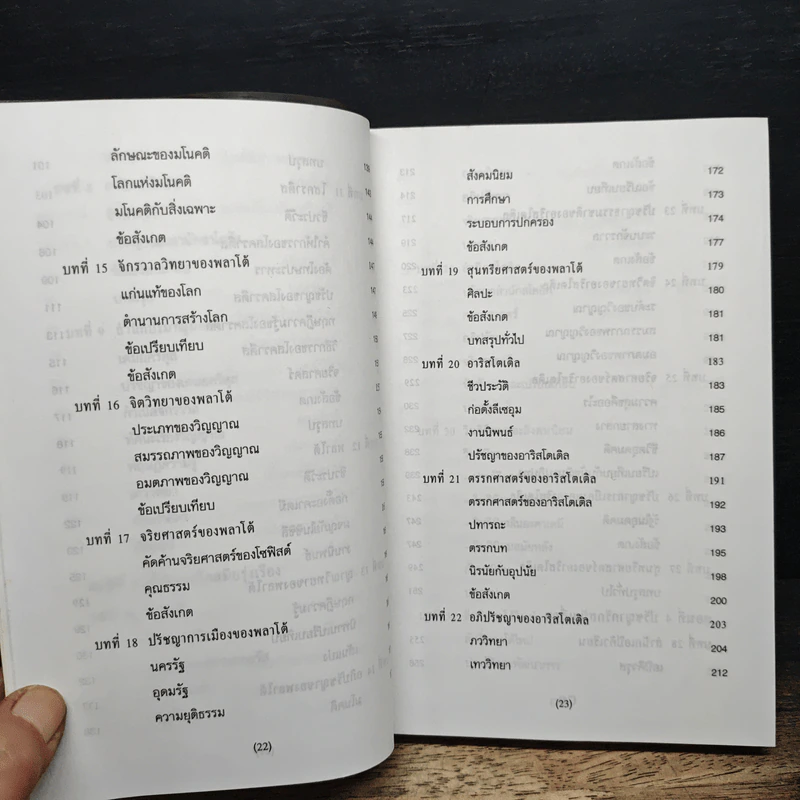 ลักษณะของมโนคติ
โลกแห่งมโนคติ
มโนคติกับสิ่งเฉพาะ
ข้อสังเกต
บทที่ 15 จักรวาลวิทยาของพลาโต้
แก่นแท้ของโลก
ตำนานการสร้างโลก
ข้อเปรียบเทียบ
ข้อสังเกต
บทที่ 16 จิตวิทยาของพลาโต้
ประเภทของวิญญาณ
สมรรถภาพของวิญญาณ
อมตภาพของวิญญาณ
ข้อเปรียบเทียบ
บทที่ 17 จริยศาสตร์ของพลาโต้
คัดค้านจริยศาสตร์ของโซฟิสต์
คุณธรรม
ข้อสังเกต
บทที่ 18 ปรัชญาการเมืองของพลาโต้
นครรัฐ
อุดมรัฐ
ความยุติธรรม
(22)
สังคมนิยม 172
การศึกษา 173
ระบอบการปกครอง 174
ข้อสังเกต 177
บทที่ 19 สุนทรียศาสตร์ของพลาโต้ 179
ศิลปะ 180
ข้อสังเกต 181
บทสรุปทั่วไป 181
บทที่ 20 อาริสโตเติล 183
ชีวประวัติ 183
ก่อตั้งลีเซอุม 185
งานนิพนธ์ 186
ปรัชญาของอาริสโตเติล 187
บทที่ 21 ตรรกศาสตร์ของอาริสโตเติล 191
ตรรกศาสตร์ของอาริสโตเติล 192
ปทารถะ 193
ตรรกบท 195
นิรนัยกับอุปนัย 198
ข้อสังเกต 200
บทที่ 22 อภิปรัชญาของอาริสโตเติล 203
ภววิทยา 204
เทววิทยา 212
(23)